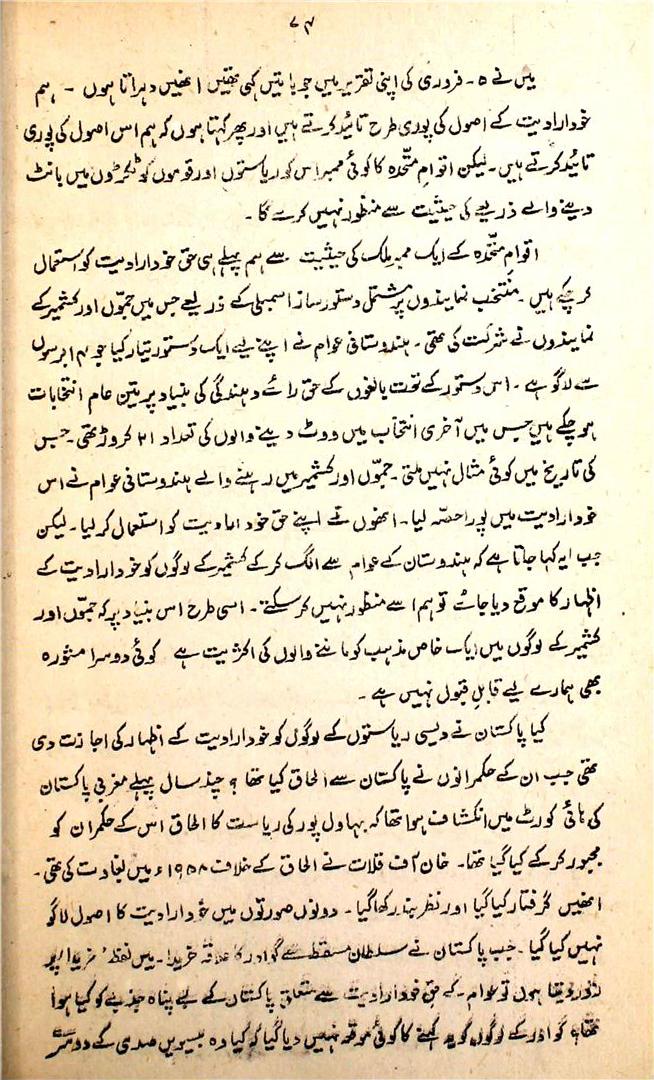 ۷۴
میں نے ۵۔ فروری کی اپنی تقریر میں جو باتیں کہی تھیں انھیں دہراتا ہوں ۔ ہم
خود ارادیت کے اصول کی پوری طرح تائید کرتے ہیں اور پھر کہتا ہوں کہ ہم اس اصول کی پوری
تائید کرتے ہیں۔ لیکن اقوام متحّدہ کا کوئی ممبر اس کو ریاستوں اور قوموں کو ٹکڑوں میں بانٹ
دینے والے ذریعے کی حیثیت سے منظور نہیں کرے گا ۔
اقوام متحّدہ کے ایک ممبر ملک کی حیثیت سے ہم پہلے ہی حق خود ارادیت کو استعمال
کر چکے ہیں۔ منتخب نمایندوں پر مشتمل دستور ساز اسمبلی کے ذریعے جس میں جموّں اور کشمیر کے
نمایندوں نے شرکت کی تھی۔ ہندوستانی عوام نے اپنے لیے ایک دستور تیار کیا جو ۱۴ برسوں
سے لاگو ہے ۔ اس دستور کے تحت بالغوں کے حق رائے دہندگی کی بنیاد پر تین عام انتخابات
ہو چکے ہیں جس میں آخری انتخاب میں ووٹ دینے والوں کی تعداد ۲۱ کروڑ تھی۔ جس
کی تاریخ میں کوئی مثال نہیں ملتی۔ جموّں اور کشمیر میں رہنے والے ہندوستانی عوام نے اس
خود ارادیت میں پورا حصّہ لیا۔ انھوں نے اپنے حق خود ارادیت کو استعمال کر لیا۔ لیکن
جب یہ کہا جاتا ہے کہ ہندوستان کے عوام سے الگ کر کے کشمیر کے لوگوں کو خود ارادیت کے
اظہار کا موقع دیا جائے تو ہم اسے منظور نہیں کر سکتے ۔ اسی طرح اس بنیاد پر کہ جموّں اور
کشمیر کے لوگوں میں ایک خاص مذہب کو ماننے والوں کی اکثریت ہے کوئی دوسرا مشورہ
بھی ہمارے لیے قابلِ قبول نہیں ہے ۔
کیا پاکستان نے دیسی ریاستوں کے لوگوں کو خود ارادیت کے اظہار کی اجازت دی
تھی جب ان کے حکمرانوں نے پاکستان سے الحاق کیا تھا ؟ چند سال پہلے مغربی پاکستان
کی ہائی کورٹ میں انکشاف ہوا تھا کہ بہاول پور کی ریاست کا الحاق اس کے حکمران کو
مجبور کر کے کیا گیا تھا ۔ خان آف قلات نے الحاق کے خلاف ۱۹۵۸ء میں بغاوت کی تھی ۔
انھیں گرفتار کیا گیا اور نظر بند رکھا گیا ۔ دونوں صورتوں میں خود ارادیت کا اصول لاگو
نہیں کیا گیا ۔ جب پاکستان نے سلطان مسقط سے گوادر کا علاقہ خریدا ۔ میں لفظ ' خریدا' پر
زور دیتا ہوں تو عوام ۔ کے حق خود ارادیت سے متعلق پاکستان کے بے پناہ جذبے کو کیا ہوا
تھا ؟ گوادر کے لوگوں کو یہ کہنے کا کوئی موقعہ نہیں دیا گیا کہ کیا وہ بیسویں صدی کے دوسرے